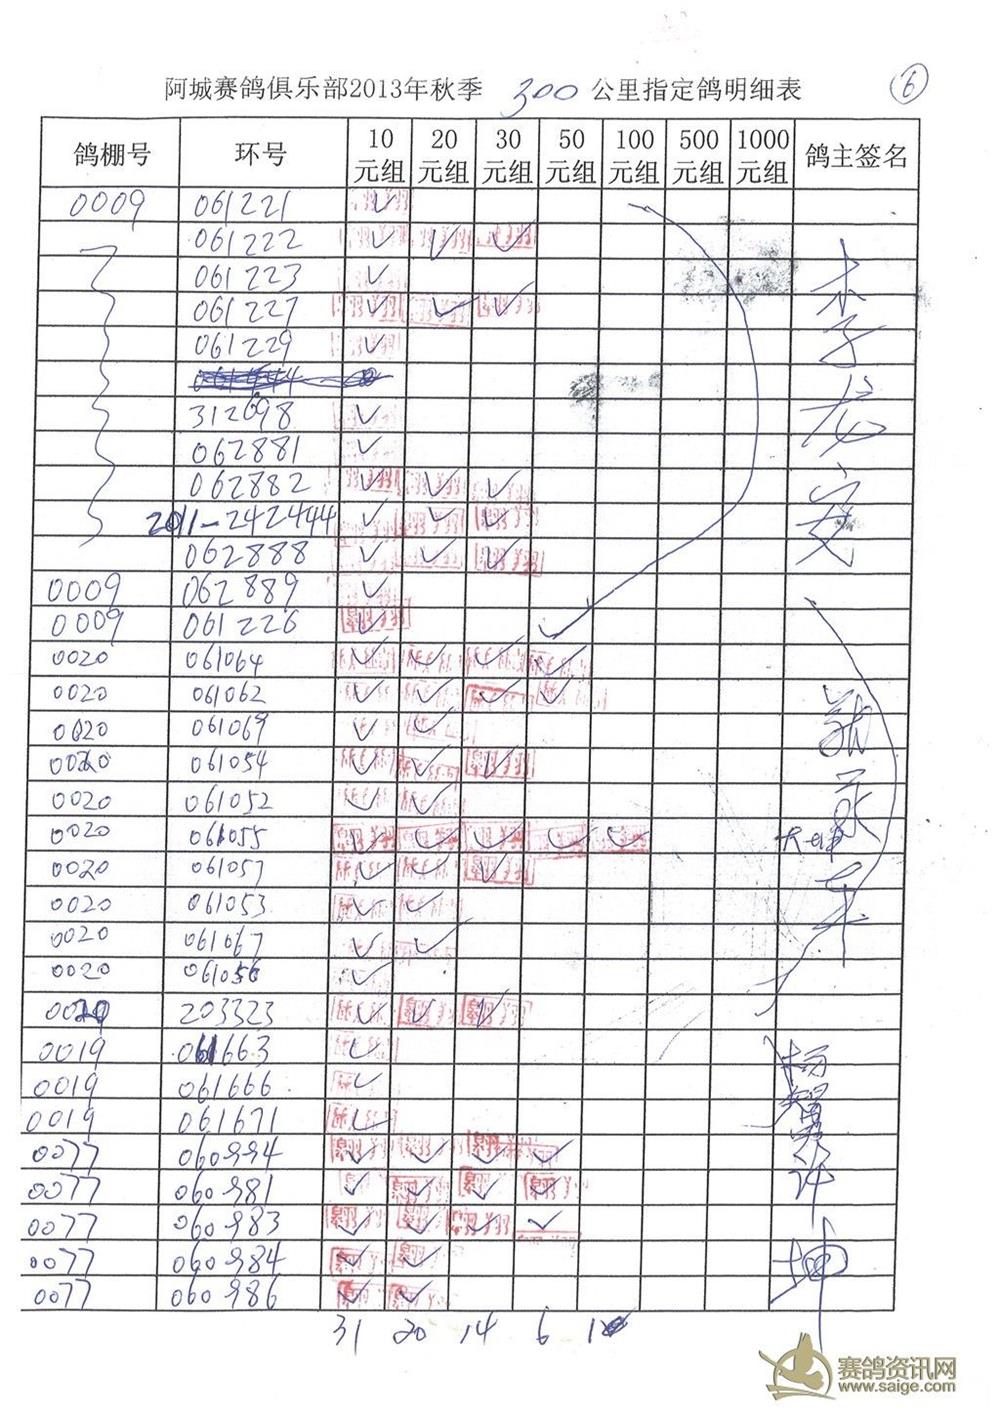 阿城赛鸽俱乐部2013年秋季 300 公里指定鸽明细表 ⑥
鸽棚号 环号 10元组 20元组 30元组 50元组 100元组 500元组 1000元组 鸽主签名
0009 061221 ✓
061222 ✓ ✓ ✓
061223 ✓
061227 ✓ ✓ ✓
061229 ✓
312698 ✓
062881 ✓
062882 ✓ ✓ ✓
2011-242444 ✓ ✓ ✓
062888 ✓ ✓ ✓
0009 062889 ✓
0009 061226 ✓
0020 061064 ✓ ✓ ✓ ✓
0020 061062 ✓ ✓ ✓ ✓
0020 061069 ✓ ✓
0020 061054 ✓ ✓ ✓
0020 061052 ✓ ✓
0020 061055 ✓ ✓ ✓ ✓ ✓
0020 061057 ✓ ✓ ✓
0020 061053 ✓ ✓
0020 061067 ✓ ✓
0020 061056 ✓
0020 203323 ✓ ✓ ✓
0019 061663 ✓
0019 061666 ✓
0019 061671 ✓
0077 060994 ✓ ✓ ✓ ✓
0077 060981 ✓ ✓ ✓ ✓
0077 060983 ✓ ✓ ✓ ✓
0077 060984 ✓ ✓
0077 060986 ✓ ✓
31 20 14 6 1
坤
赛鸽资讯网
www.saige.com